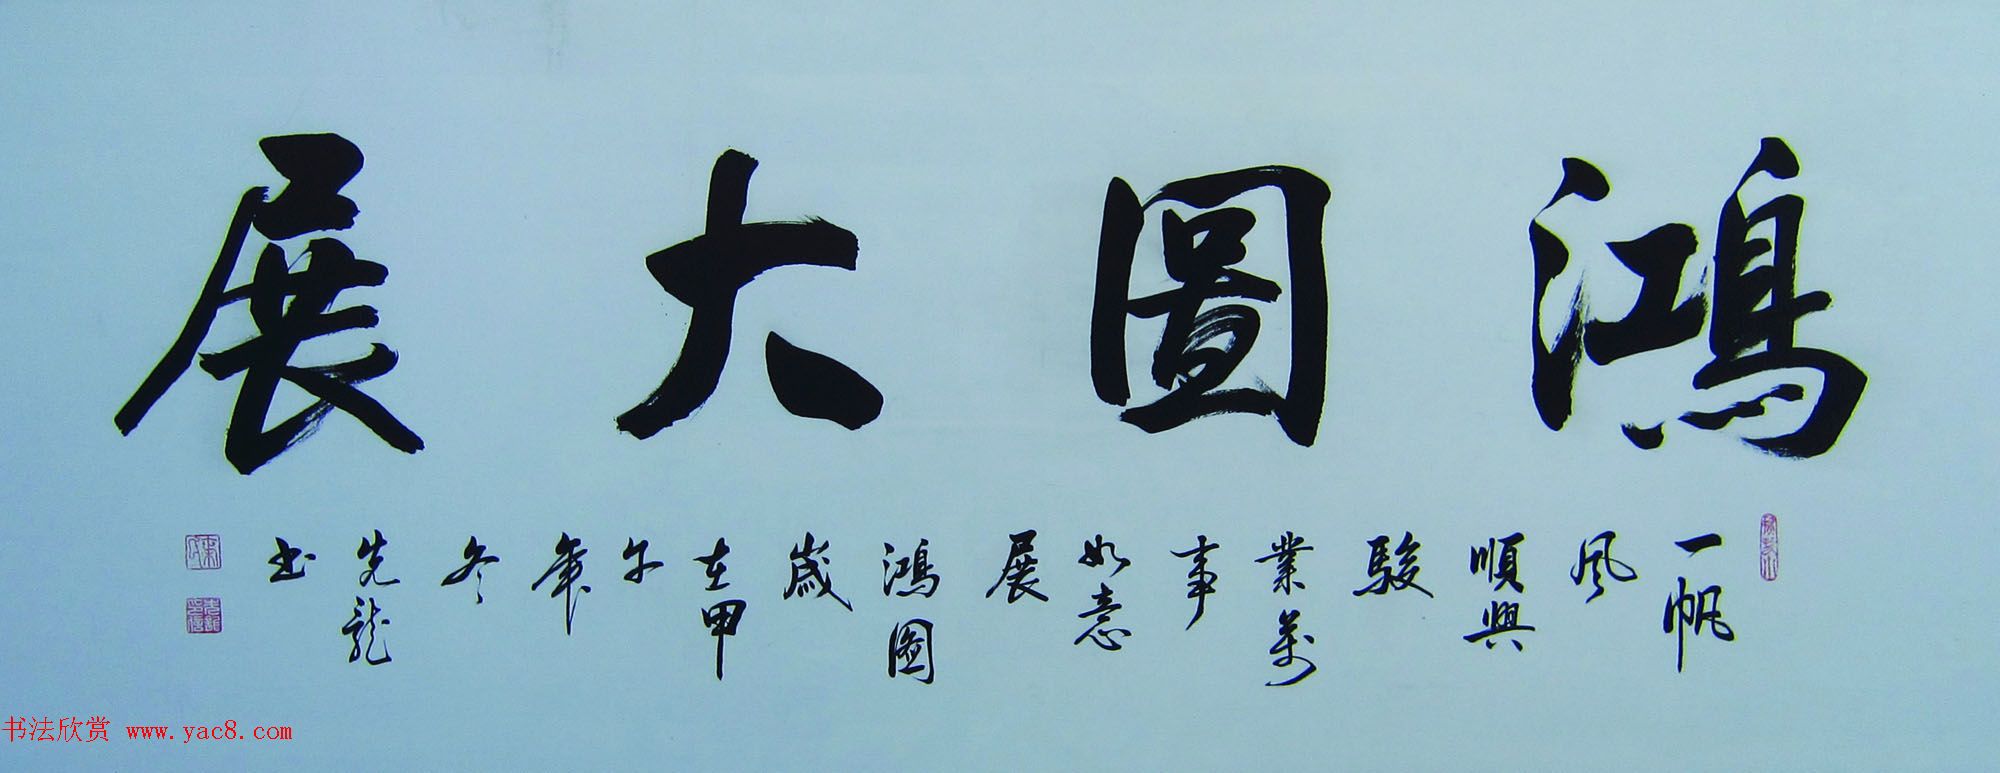 鴻圖大展
一帆
風
順興
駿
業萬
事
如意
展
鴻圖
歲
在甲
午
年
冬
先龍
书
书法欣赏 www.yac8.com